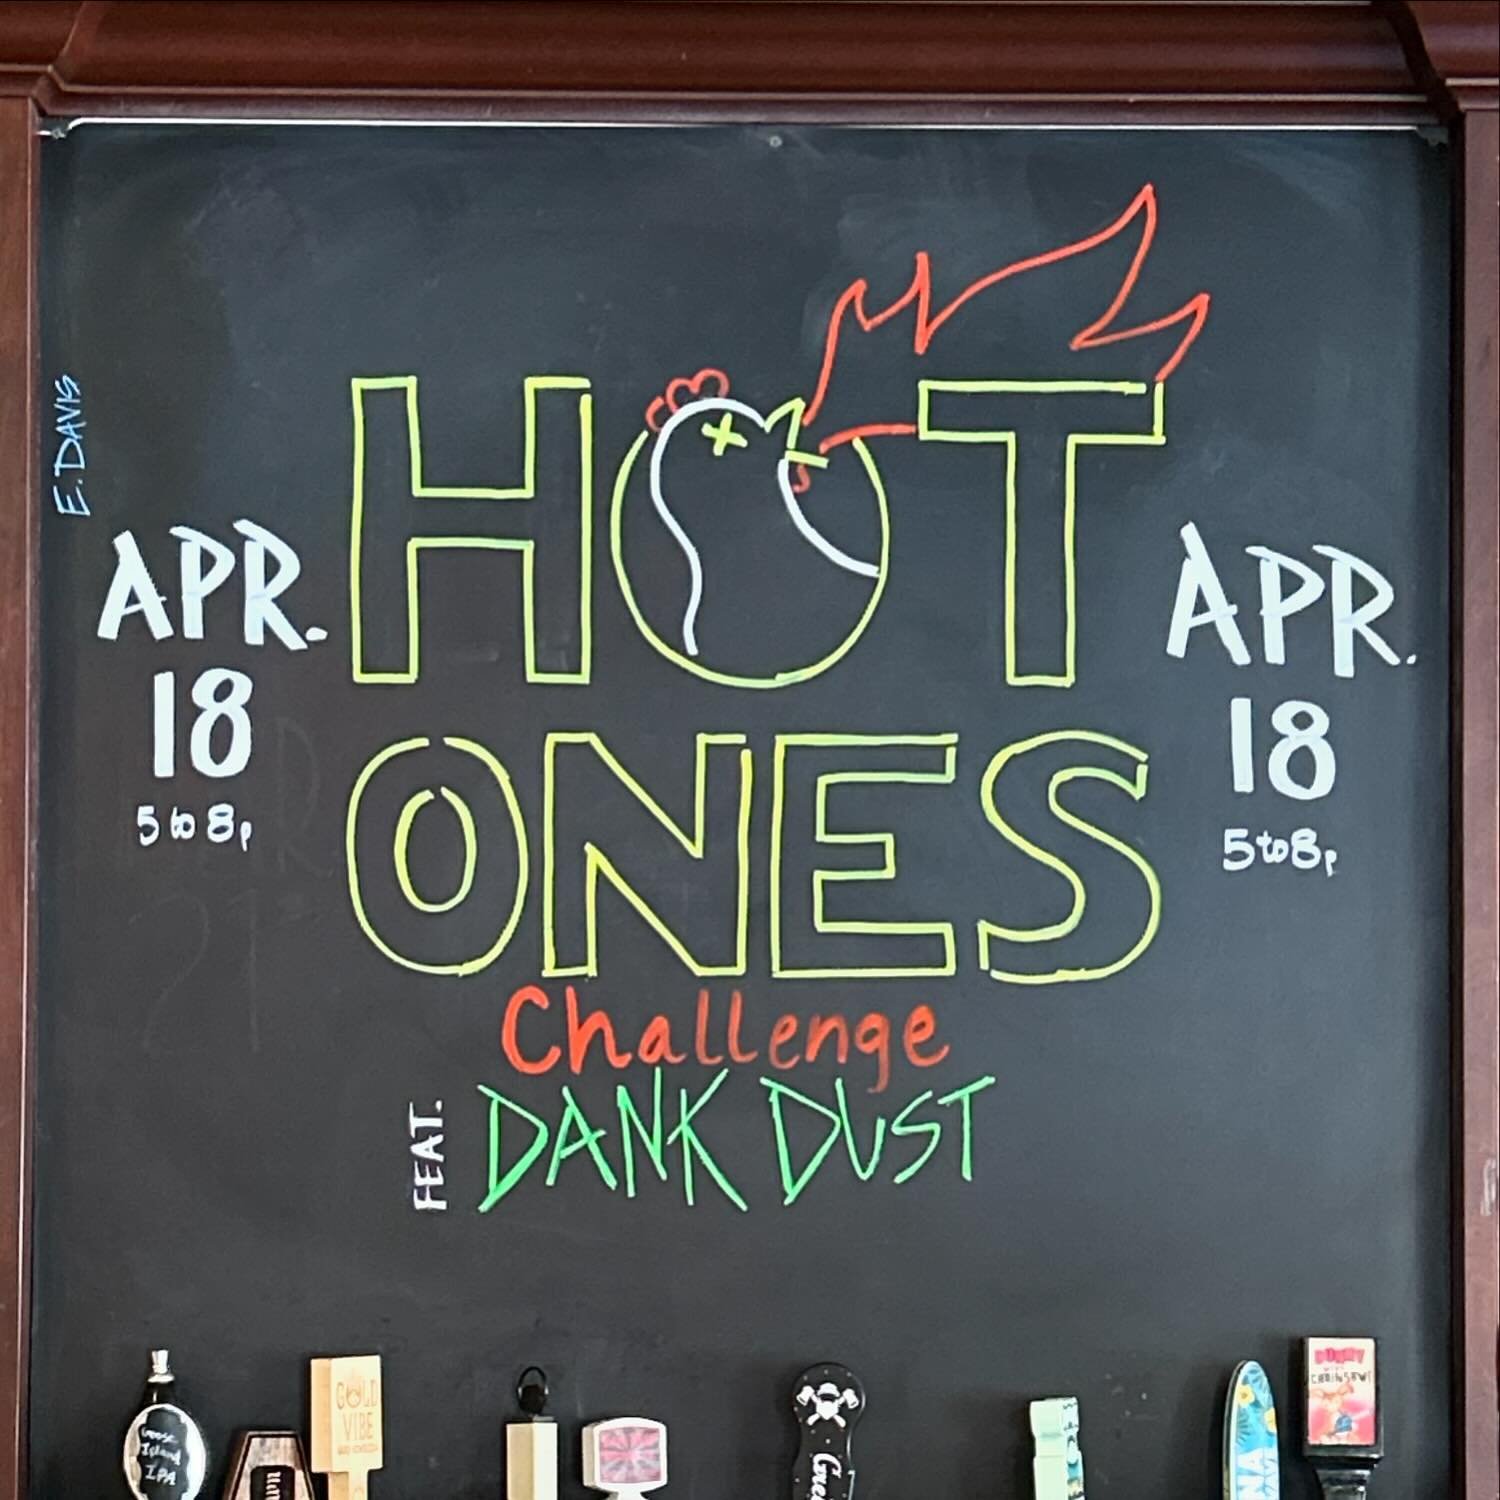 E. DAVIS
APR.
18
5 to 8p
HOT
ONES
Challenge
FEAT. DANK DUST
APR.
18
5 to 8p
Goose
Island
IPA
GOLD
VIBE